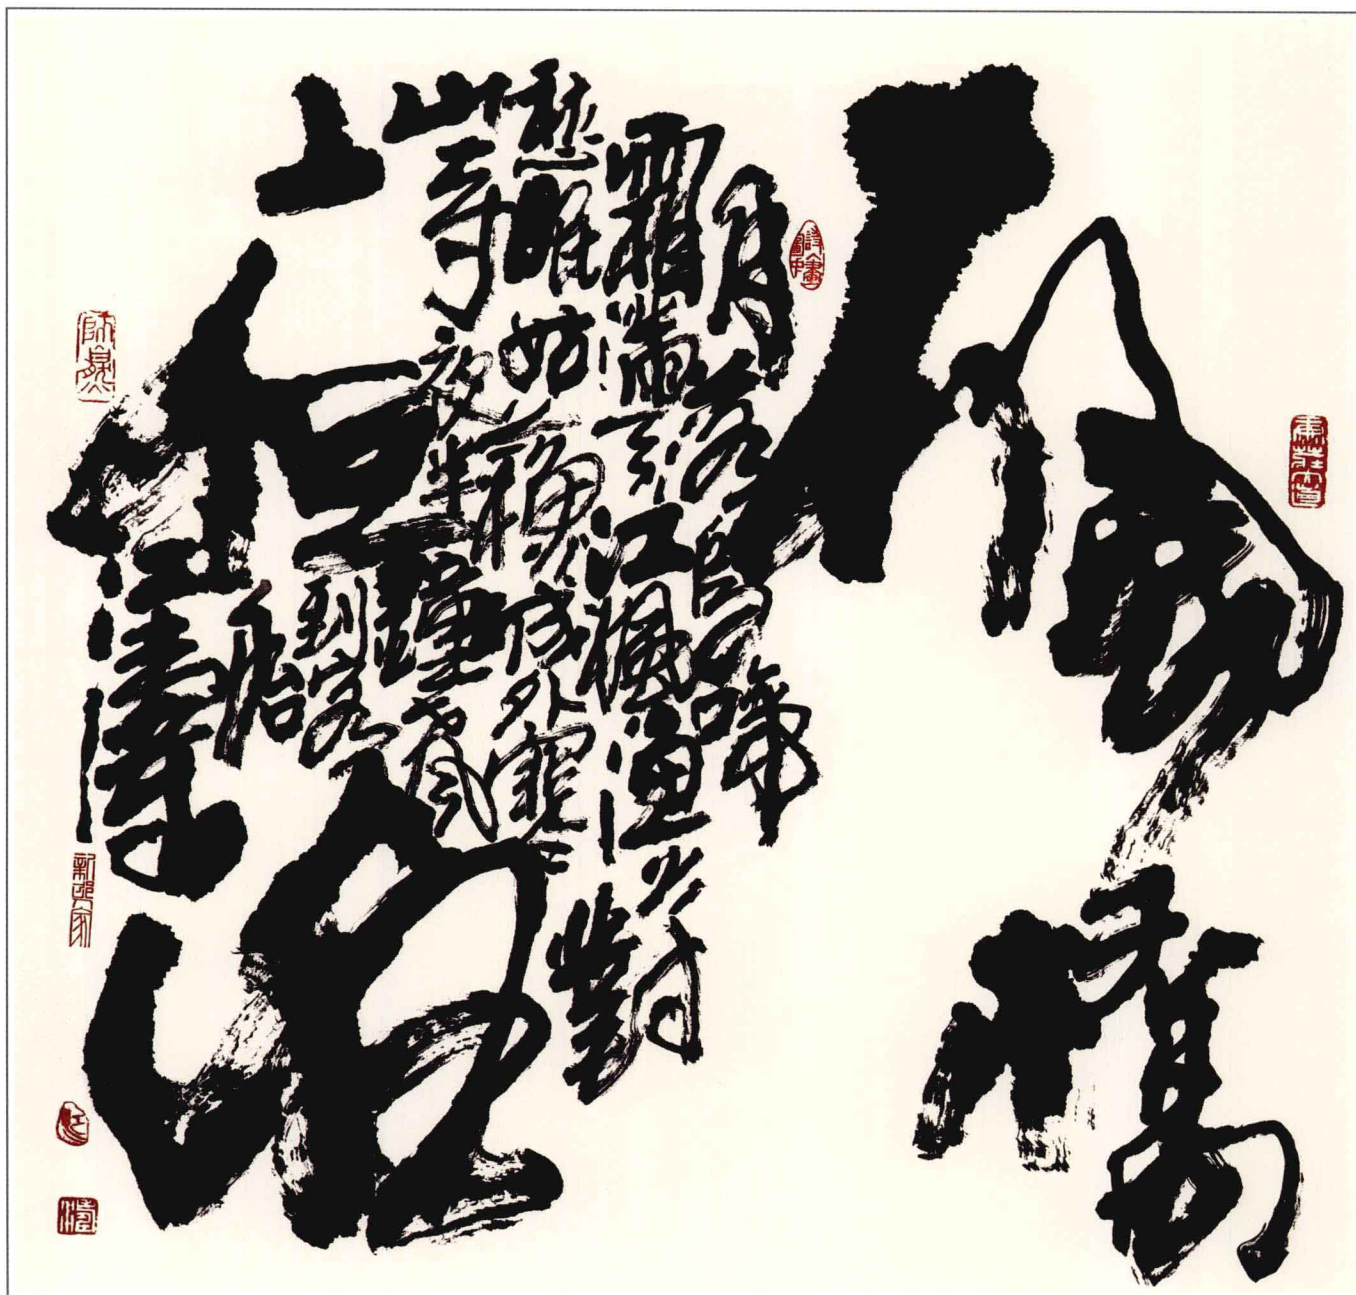 楓橋
月落烏啼
霜滿天江楓漁火對
愁眠姑蘇城外寒
山寺夜半鐘聲
到客
船
夜泊